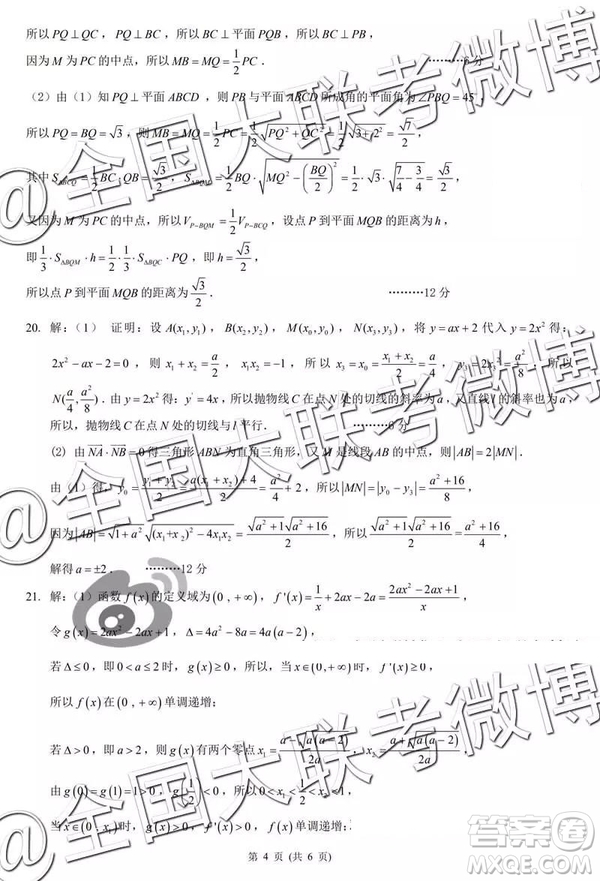 所以 PQ⊥QC , PQ⊥BC , 所以 BC⊥平面 PQB , 所以 BC⊥PB ,
因为 M 为 PC 的中点，所以 MB = MQ = 1/2 PC . ………6 分
（2）由（1）知 PQ⊥平面 ABCD , 则 PB 与平面 ABCD 所成角的平面角为 ∠PBQ = 45°
所以 PQ = BQ = √3 , 则 MB = MQ = 1/2 PC = 1/2 √(PQ² + QC²) = 1/2 √(3 + 2²) = √7/2 ,
其中 S△BCQ = 1/2 BC·QB = √3/2 , S△BQM = 1/2 BQ·√(MQ² − (BQ/2)²) = 1/2·√3·√(7/4 − 3/4) = √3/2 ,
又因为 M 为 PC 的中点，所以 V P−BQM = 1/2 V P−BCQ , 设点 P 到平面 MQB 的距离为 h ,
即 1/3·S△BQM·h = 1/2·1/3·S△BQC·PQ , 即 h = √3/2 ,
所以点 P 到平面 MQB 的距离为 √3/2 . ………12 分
20. 解:（1） 证明: 设 A(x₁, y₁) , B(x₂, y₂) , M(x₀, y₀) , N(x₃, y₃) , 将 y = ax + 2 代入 y = 2x² 得:
2x² − ax − 2 = 0 , 则 x₁ + x₂ = a/2 , x₁x₂ = −1 , 所以 x₃ = x₀ = (x₁ + x₂)/2 = a/4 , y₃ = 2x₃² = a²/8 . 所以
N(a/4, a²/8) . 由 y = 2x² 得: y′ = 4x , 所以抛物线 C 在点 N 处的切线的斜率为 a , 又直线 l 的斜率也为 a ,
所以，抛物线 C 在点 N 处的切线与 l 平行. ………6 分
(2) 由 NA·NB = 0 得三角形 ABN 为直角三角形，又 M 是线段 AB 的中点，则 |AB| = 2|MN| .
由（1）得, y₀ = (y₁ + y₂)/2 = (a(x₁ + x₂) + 4)/2 = a²/4 + 2 , 所以 |MN| = |y₀ − y₃| = (a² + 16)/8 ,
因为 |AB| = √(1 + a²)√((x₁+x₂)² − 4x₁x₂) = √(a² + 1)√(a² + 16)/2 , 所以 √(a² + 1)√(a² + 16)/2 = (a² + 16)/4 ,
解得 a = ±2 . ………12 分
21. 解:（1）函数 f(x) 的定义域为 (0 , +∞) , f'(x) = 1/x + 2ax − 2a = (2ax² − 2ax + 1)/x ,
令 g(x) = 2ax² − 2ax + 1 , Δ = 4a² − 8a = 4a(a − 2) ,
若 Δ ≤ 0 , 即 0 < a ≤ 2 时, g(x) ≥ 0 , 所以, 当 x∈(0, +∞) 时, f'(x) ≥ 0 ,
所以 f(x) 在 (0 , +∞) 单调递增;
若 Δ > 0 , 即 a > 2 , 则 g(x) 有两个零点 x₁ = (a − √(a(a − 2)))/2a , x₂ = (a + √(a(a − 2)))/2a ,
由 g(0) = g(1) = 1 > 0 , g(1/2) < 0 得: 0 < x₁ < 1/2 < x₂ < 1 ,
当 x∈(0 , x₁) 时, g(x) > 0 , f'(x) > 0 , f(x) 单调递增;
第 4 页 (共 6 页)
@全国大联考微博
@全国大联考微博
@全国大联考微博
答案圈